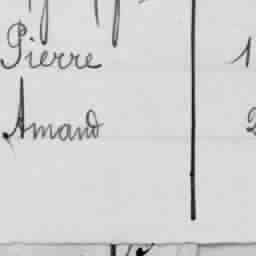 Pierre 1
Amand 2